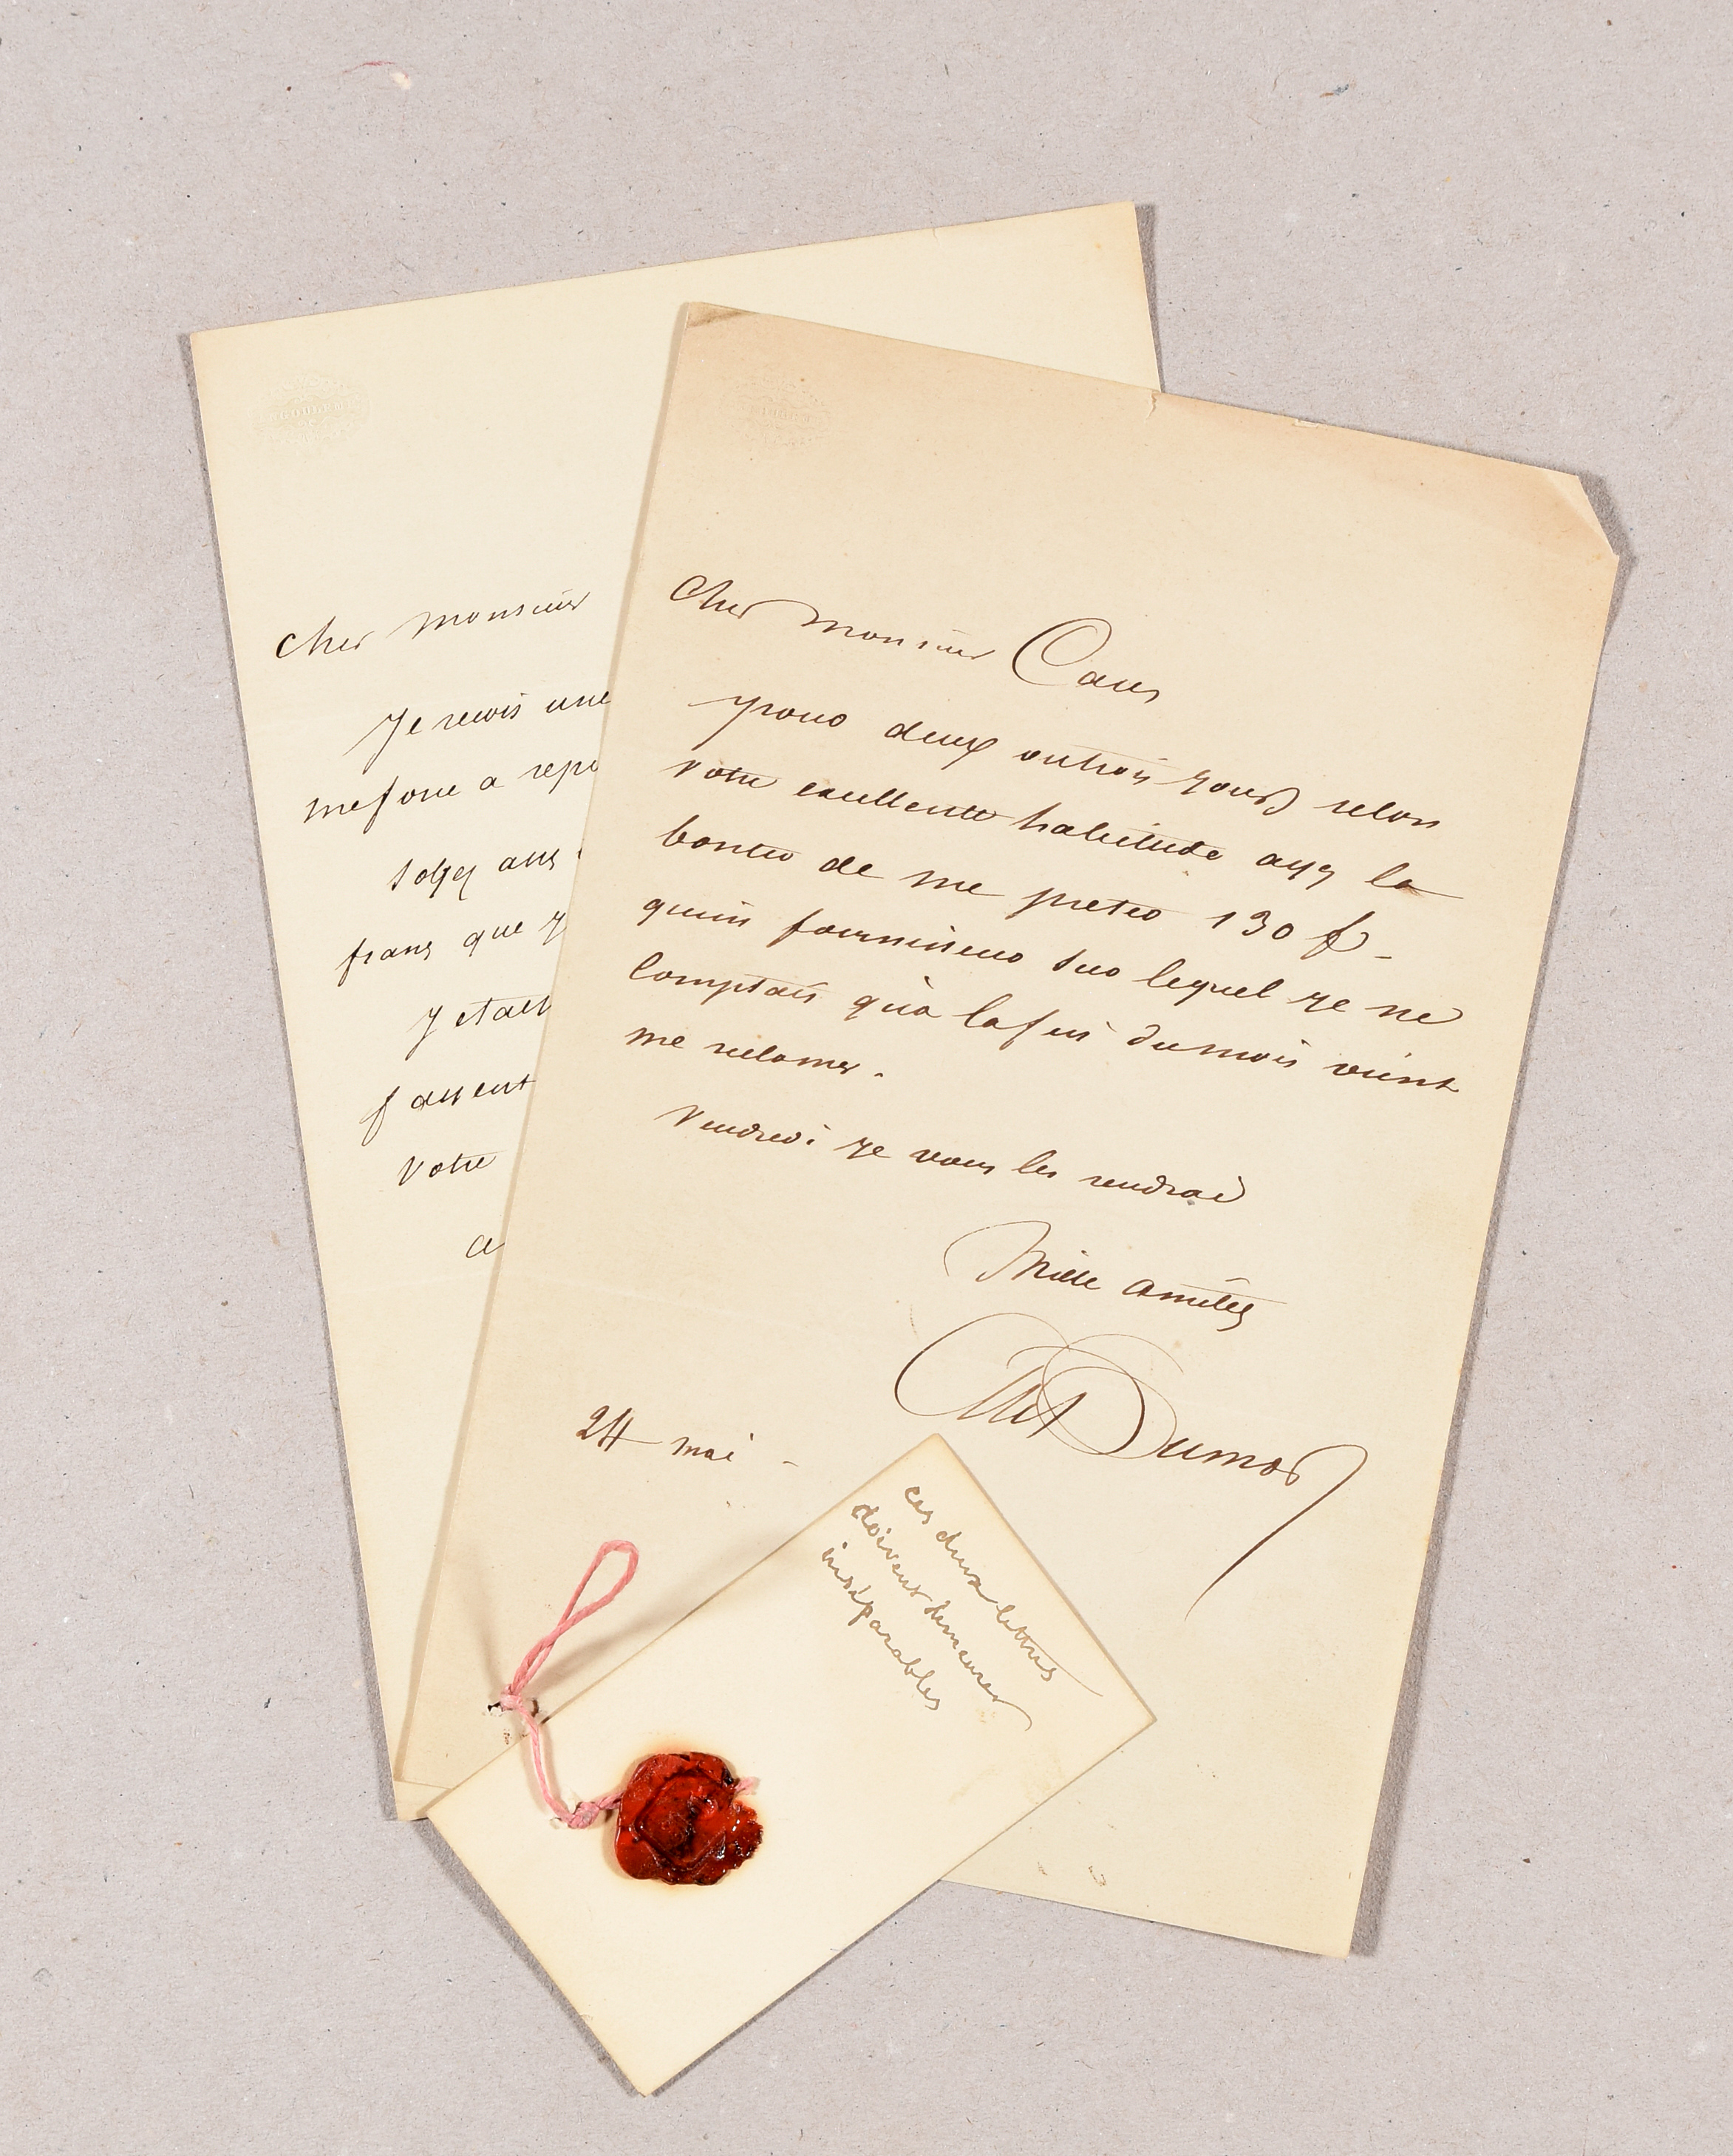 Cher Monsieur
Je recois une
me force a repo
Soyez assez
frans que j
J etait
fassent
Votre
a
Cher Monsieur
pour deux ou trois jours selon
votre excellente habitude ayez la
bonté de me preter 130 f -
qu'un fournisseur sur lequel je ne
comptais qu'a la fin du mois vient
me reclamer.
Vendredi je vous les rendrai
Mille amities
Alex Dumas
24 mai -
ces deux lettres
doivent demeurer
inséparables